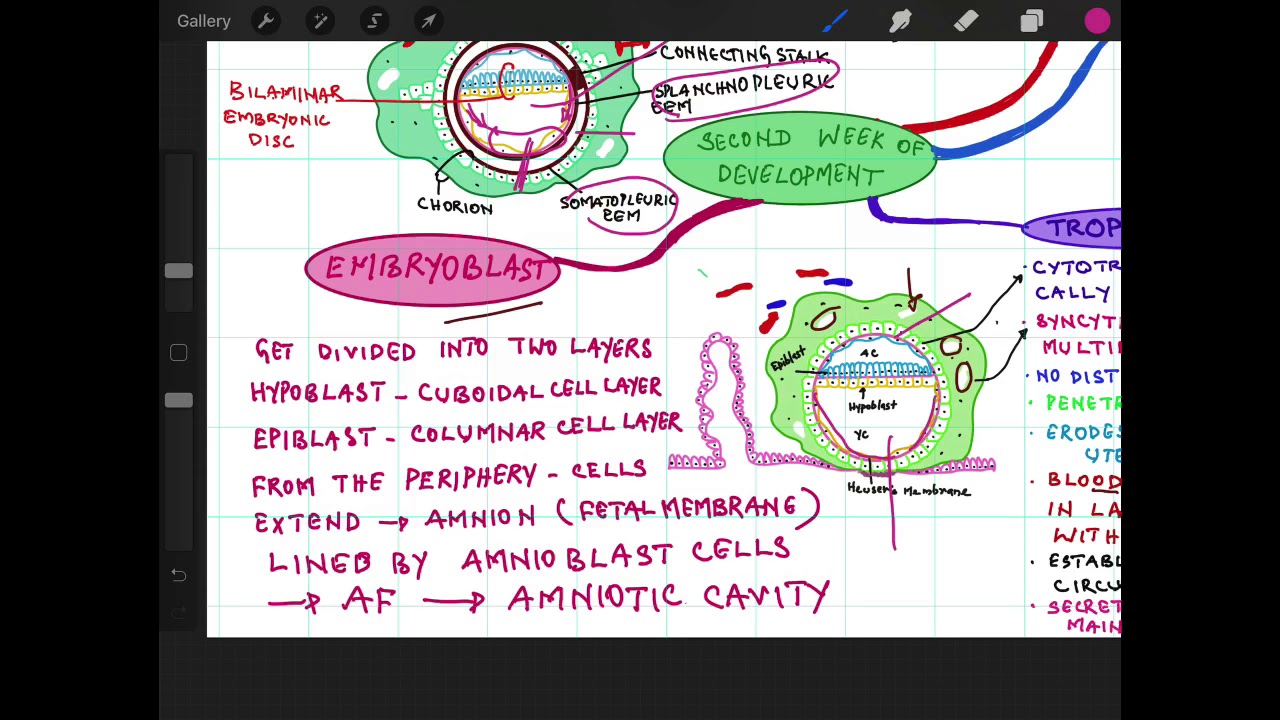 Gallery
CONNECTING STALK
SPLANCHNOPLEURIC
EEM
BILAMINAR
EMBRYONIC
DISC
CHORION
SOMATOPLEURIC
EEM
SECOND WEEK OF
DEVELOPMENT
EMBRYOBLAST
GET DIVIDED INTO TWO LAYERS
HYPOBLAST - CUBOIDAL CELL LAYER
EPIBLAST - COLUMNAR CELL LAYER
FROM THE PERIPHERY - CELLS
EXTEND → AMNION (FETAL MEMBRANE)
LINED BY AMNIOBLAST CELLS
→ AF → AMNIOTIC CAVITY
Epiblast
AC
Hypoblast
YC
Heuser's Membrane
TROP
· CYTOTR
CALLY
· SYNCYTI
MULTI
· NO DIST
· PENETR
· ERODES
UTE
· BLOOD
IN LA
WITH
· ESTABL
CIRCU
· SECRET
MAIN